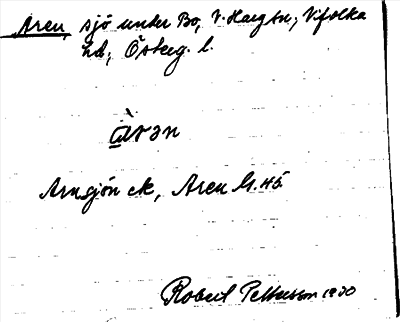 Aren, sjö under Bo, V. Harg sn, Vifolka
hd, Österg. l.
àrən
Arnsjön ek, Aren G.45
Robert Pettersson 1930